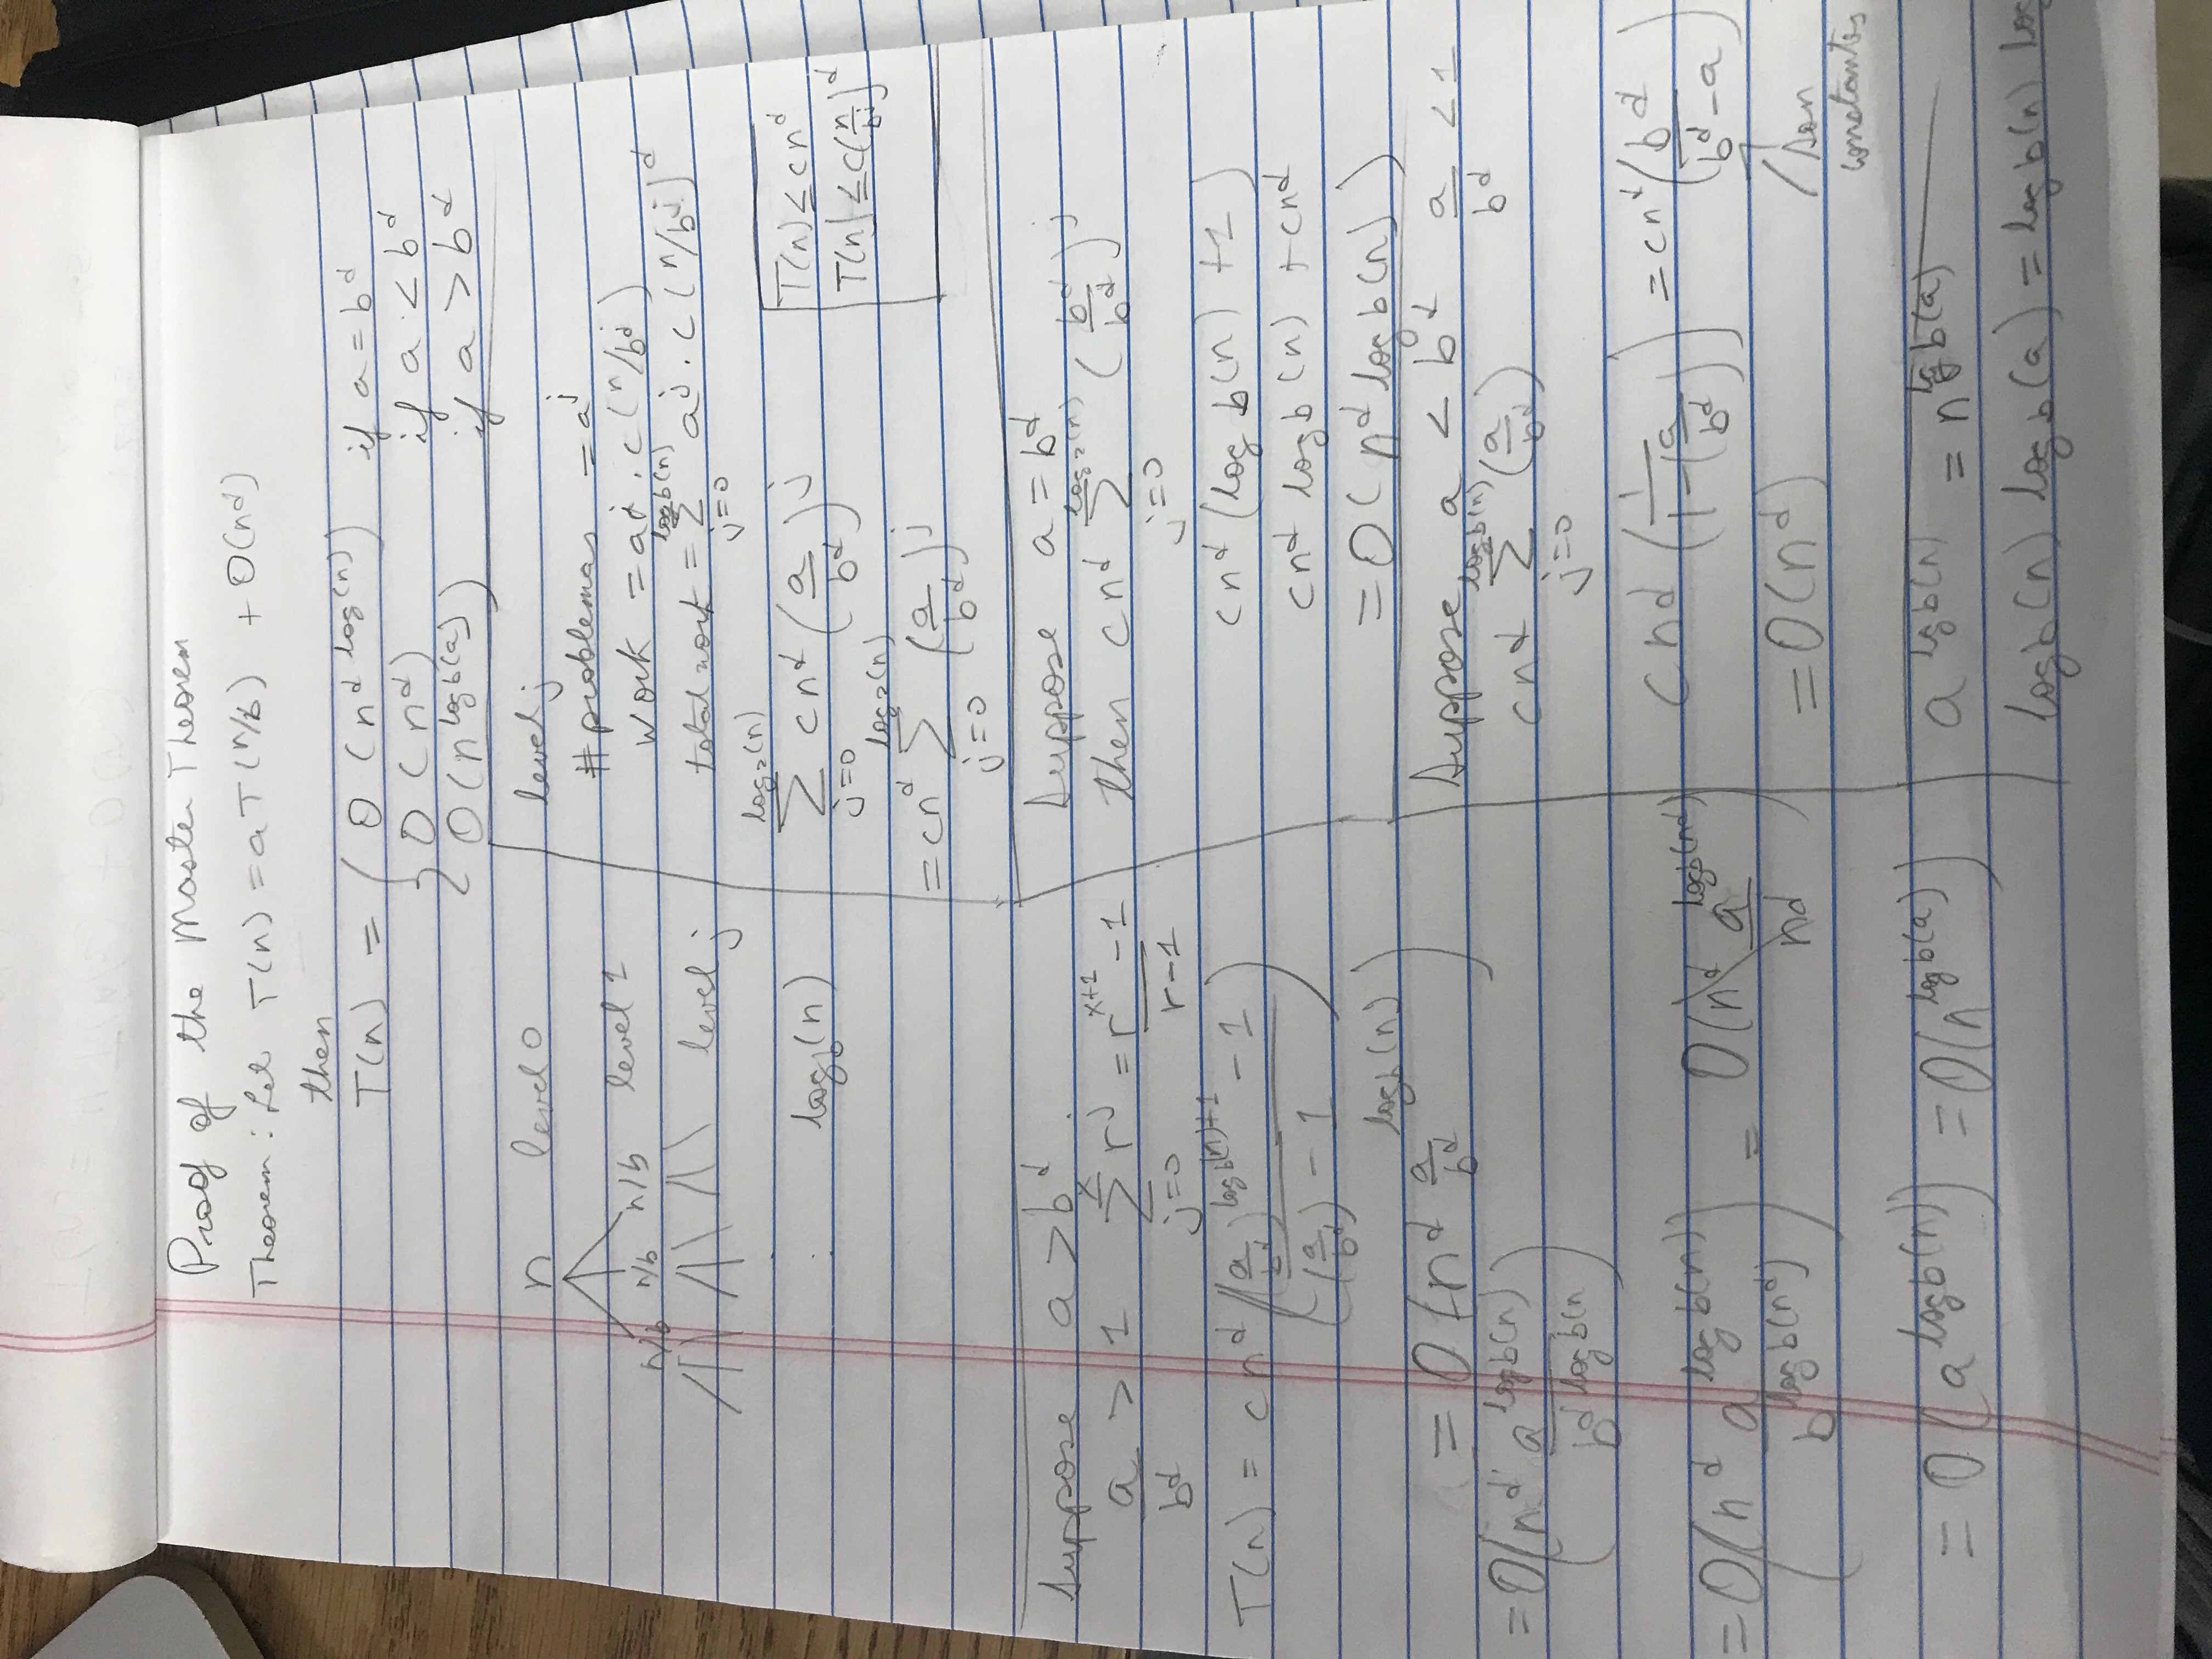 Proof of the Master Theorem
Theorem: Let T(n) = a T(n/b) + O(n^d)
then
T(n) = { O(n^d log(n)) if a = b^d
O(n^d) if a < b^d
O(n^logb(a)) if a > b^d
n level 0
n/b n/b n/b level 1
level j
log_b(n)
level j
#problemas = a^j
work = a^j . c(n/b^j)
total work = Σ_{j=0}^{logb(n)} a^j . c(n/b^j)^d
Σ_{j=0}^{log2(n)} cn^d (a/b^d)^j
= cn^d Σ_{j=0}^{log2(n)} (a/b^d)^j
T(n) ≤ cn^d
T(n) ≤ c(n/b^j)^d
Suppose a > b^d
a/b^d > 1 Σ_{j=0}^{x} r^j = (r^{x+1} - 1)/(r - 1)
T(n) = cn^d (((a/b^d)^{logb(n)+1} - 1)/((a/b^d) - 1))
= O(n^d a/b^d^{logb(n)})
= O(n^d a^{logb(n)}/b^{d logb(n})
= O(n^d a^{logb(n)}/b^{logb(n^d)}) = O(n^d a^{logb(n^d)}/n^d)
= O(a^{logb(n)}) = O(n^{logb(a)})
Suppose a = b^d
then cn^d Σ_{j=0}^{log2(n)} (b^d/b^d)^j
cn^d (log b(n) + 1)
cn^d log b(n) + cn^d
= O(n^d log b(n))
Suppose a < b^d a/b^d < 1
cn^d Σ_{j=0}^{logb(n)} (a/b^d)
cn^d (1/(1-(a/b^d))) = cn^d (b^d/(b^d - a))
= O(n^d) son
constantes
a^{logb(n)} = n^{logb(a)}
logb(n) logb(a) = logb(n) log